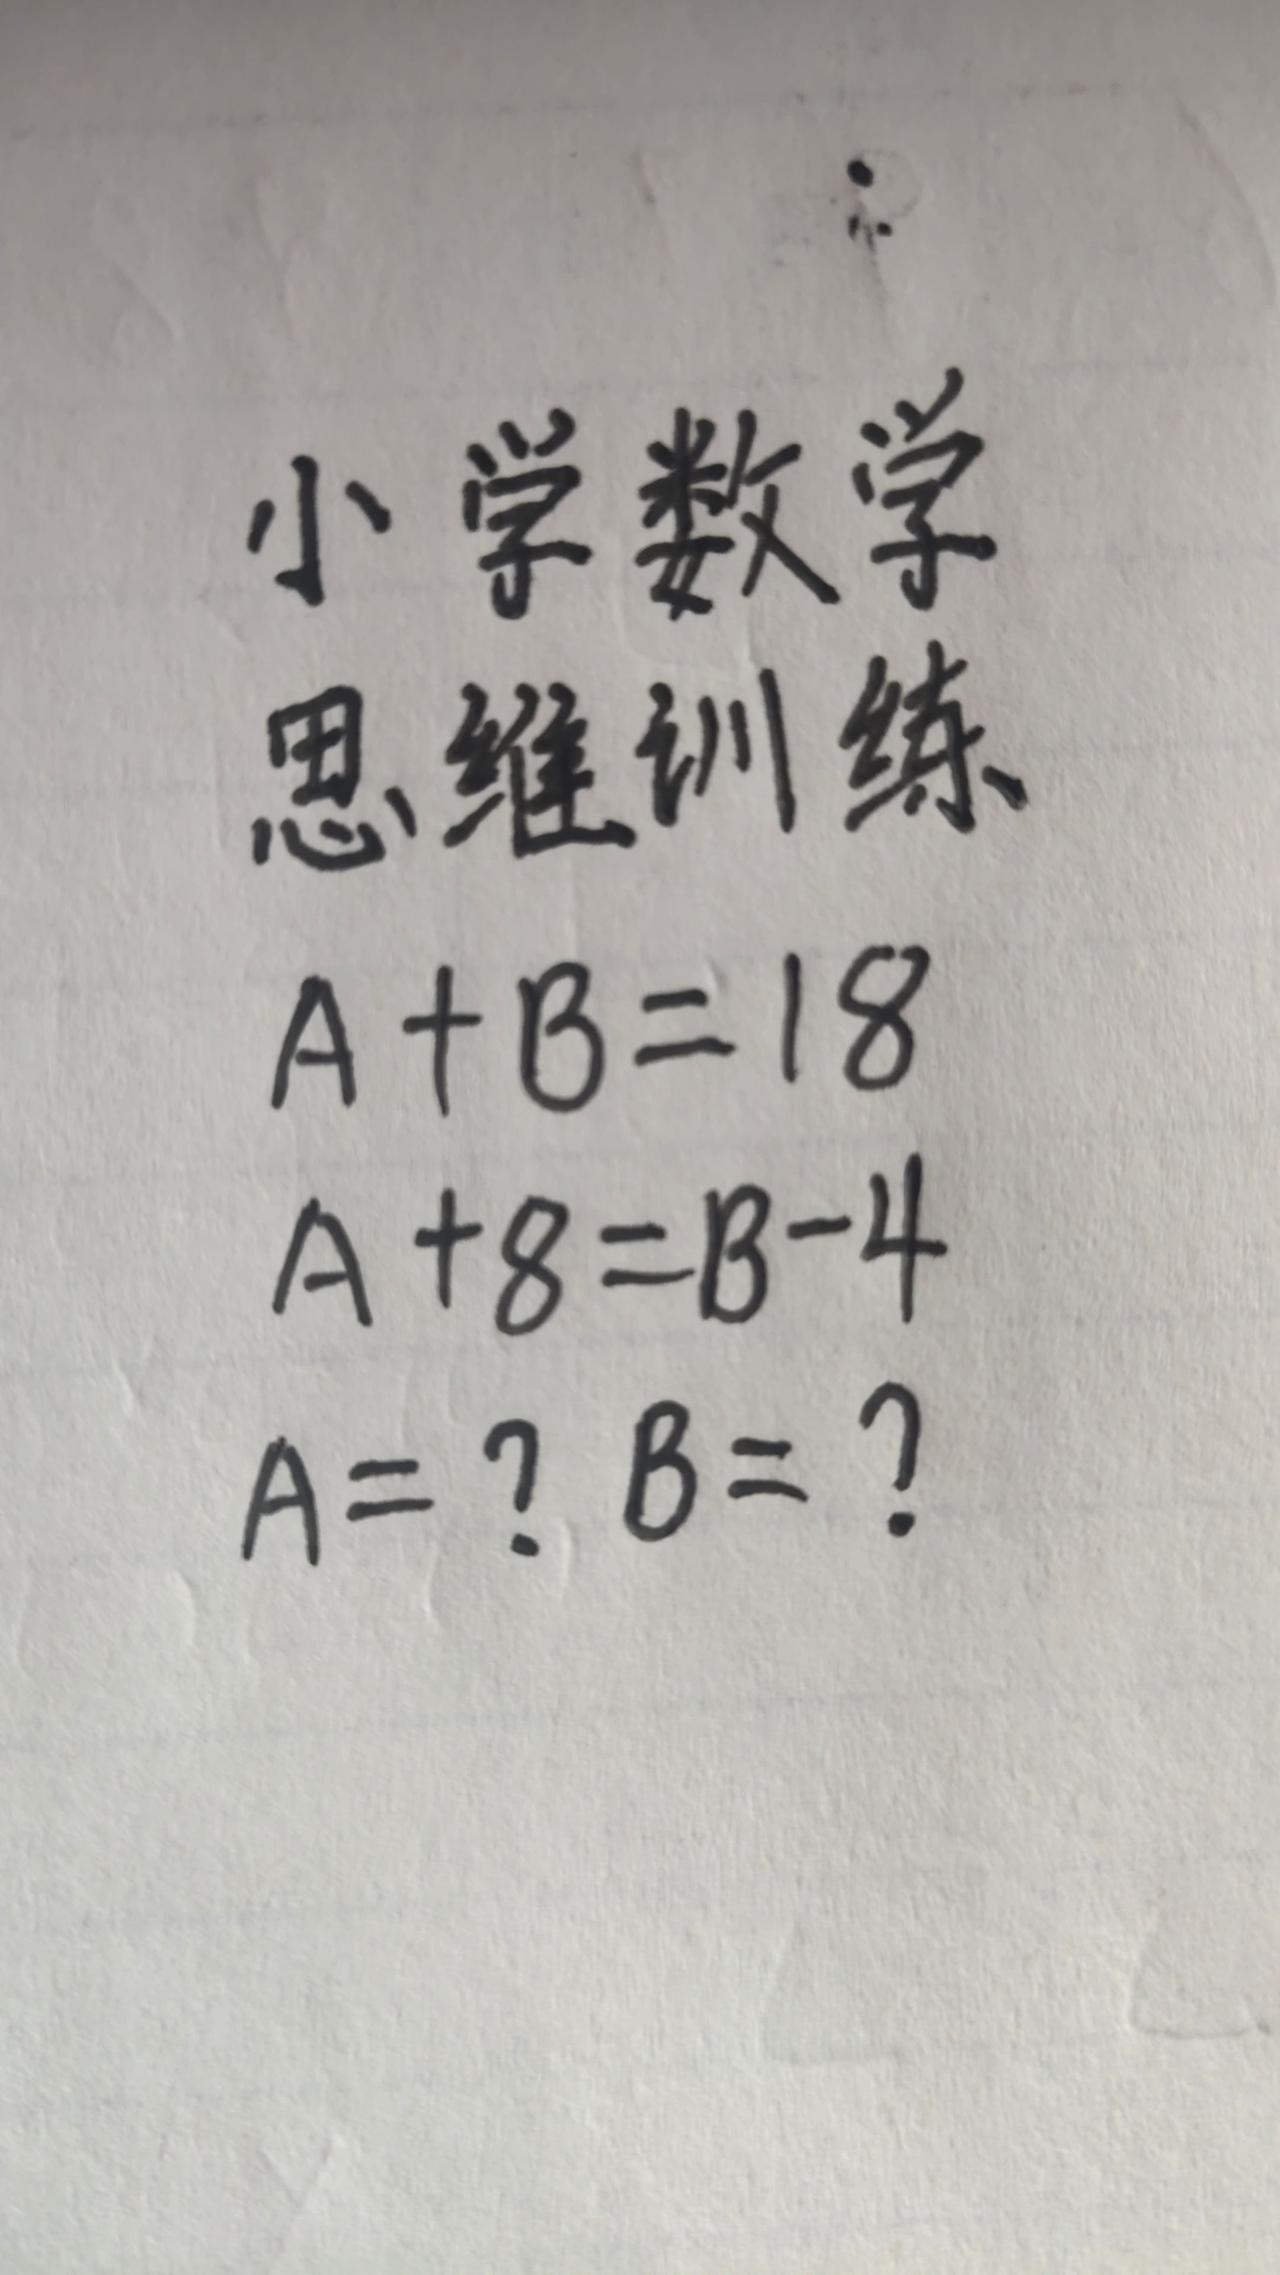 小学数学
思维训练
A+B=18
A+8=B-4
A=? B=?